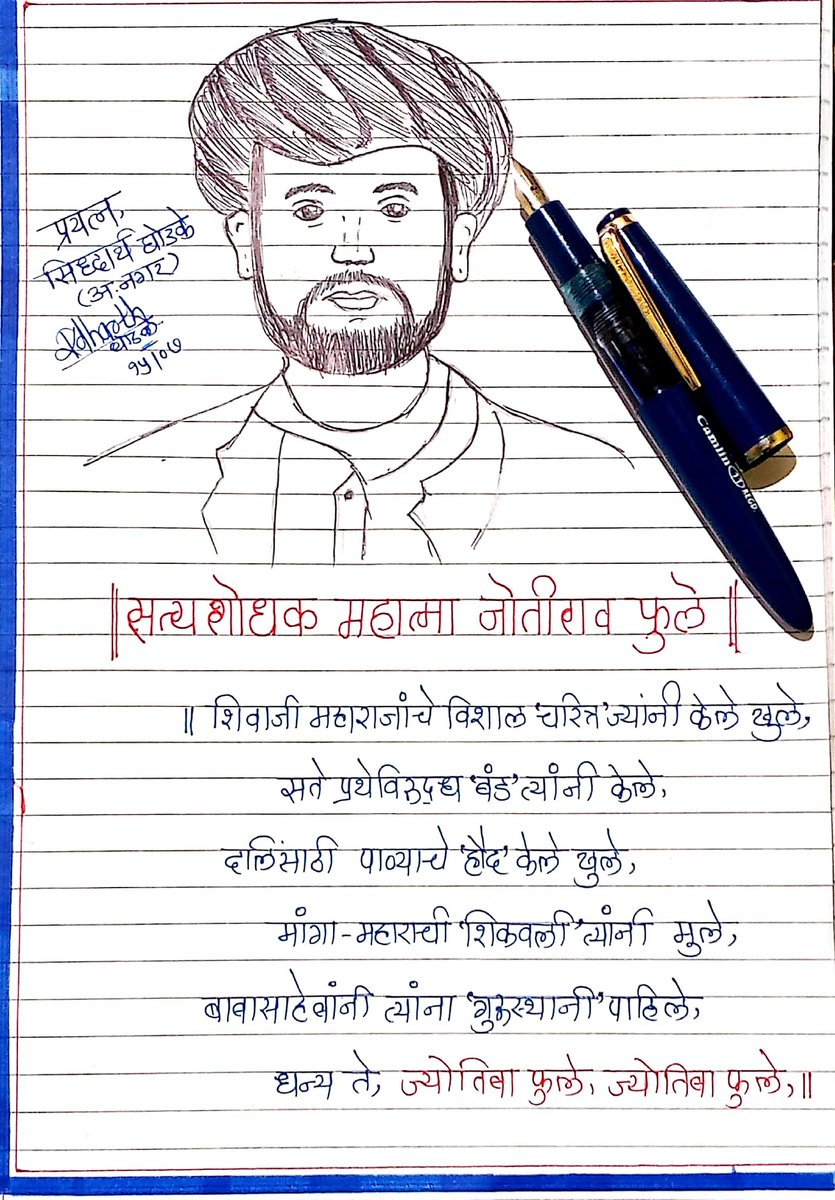 प्रयत्न,
सिध्दार्थ घोडके
(अ.नगर)
घोडके
१५/०७
Camlin
||सत्यशोधक महात्मा जोतीराव फुले||
॥ शिवाजी महाराजांचे विशाल 'चरित्र' ज्यांनी केले खुले,
सते प्रथेविरुद्ध 'बंड' त्यांनी केले,
दलितांसाठी पाण्याचे 'हौद' केले खुले,
मांगा-महाराची 'शिकवली' त्यांनी मुले,
बाबासाहेबांनी त्यांना 'गुरुस्थानी' पाहिले,
धन्य ते, ज्योतिबा फुले, ज्योतिबा फुले,॥